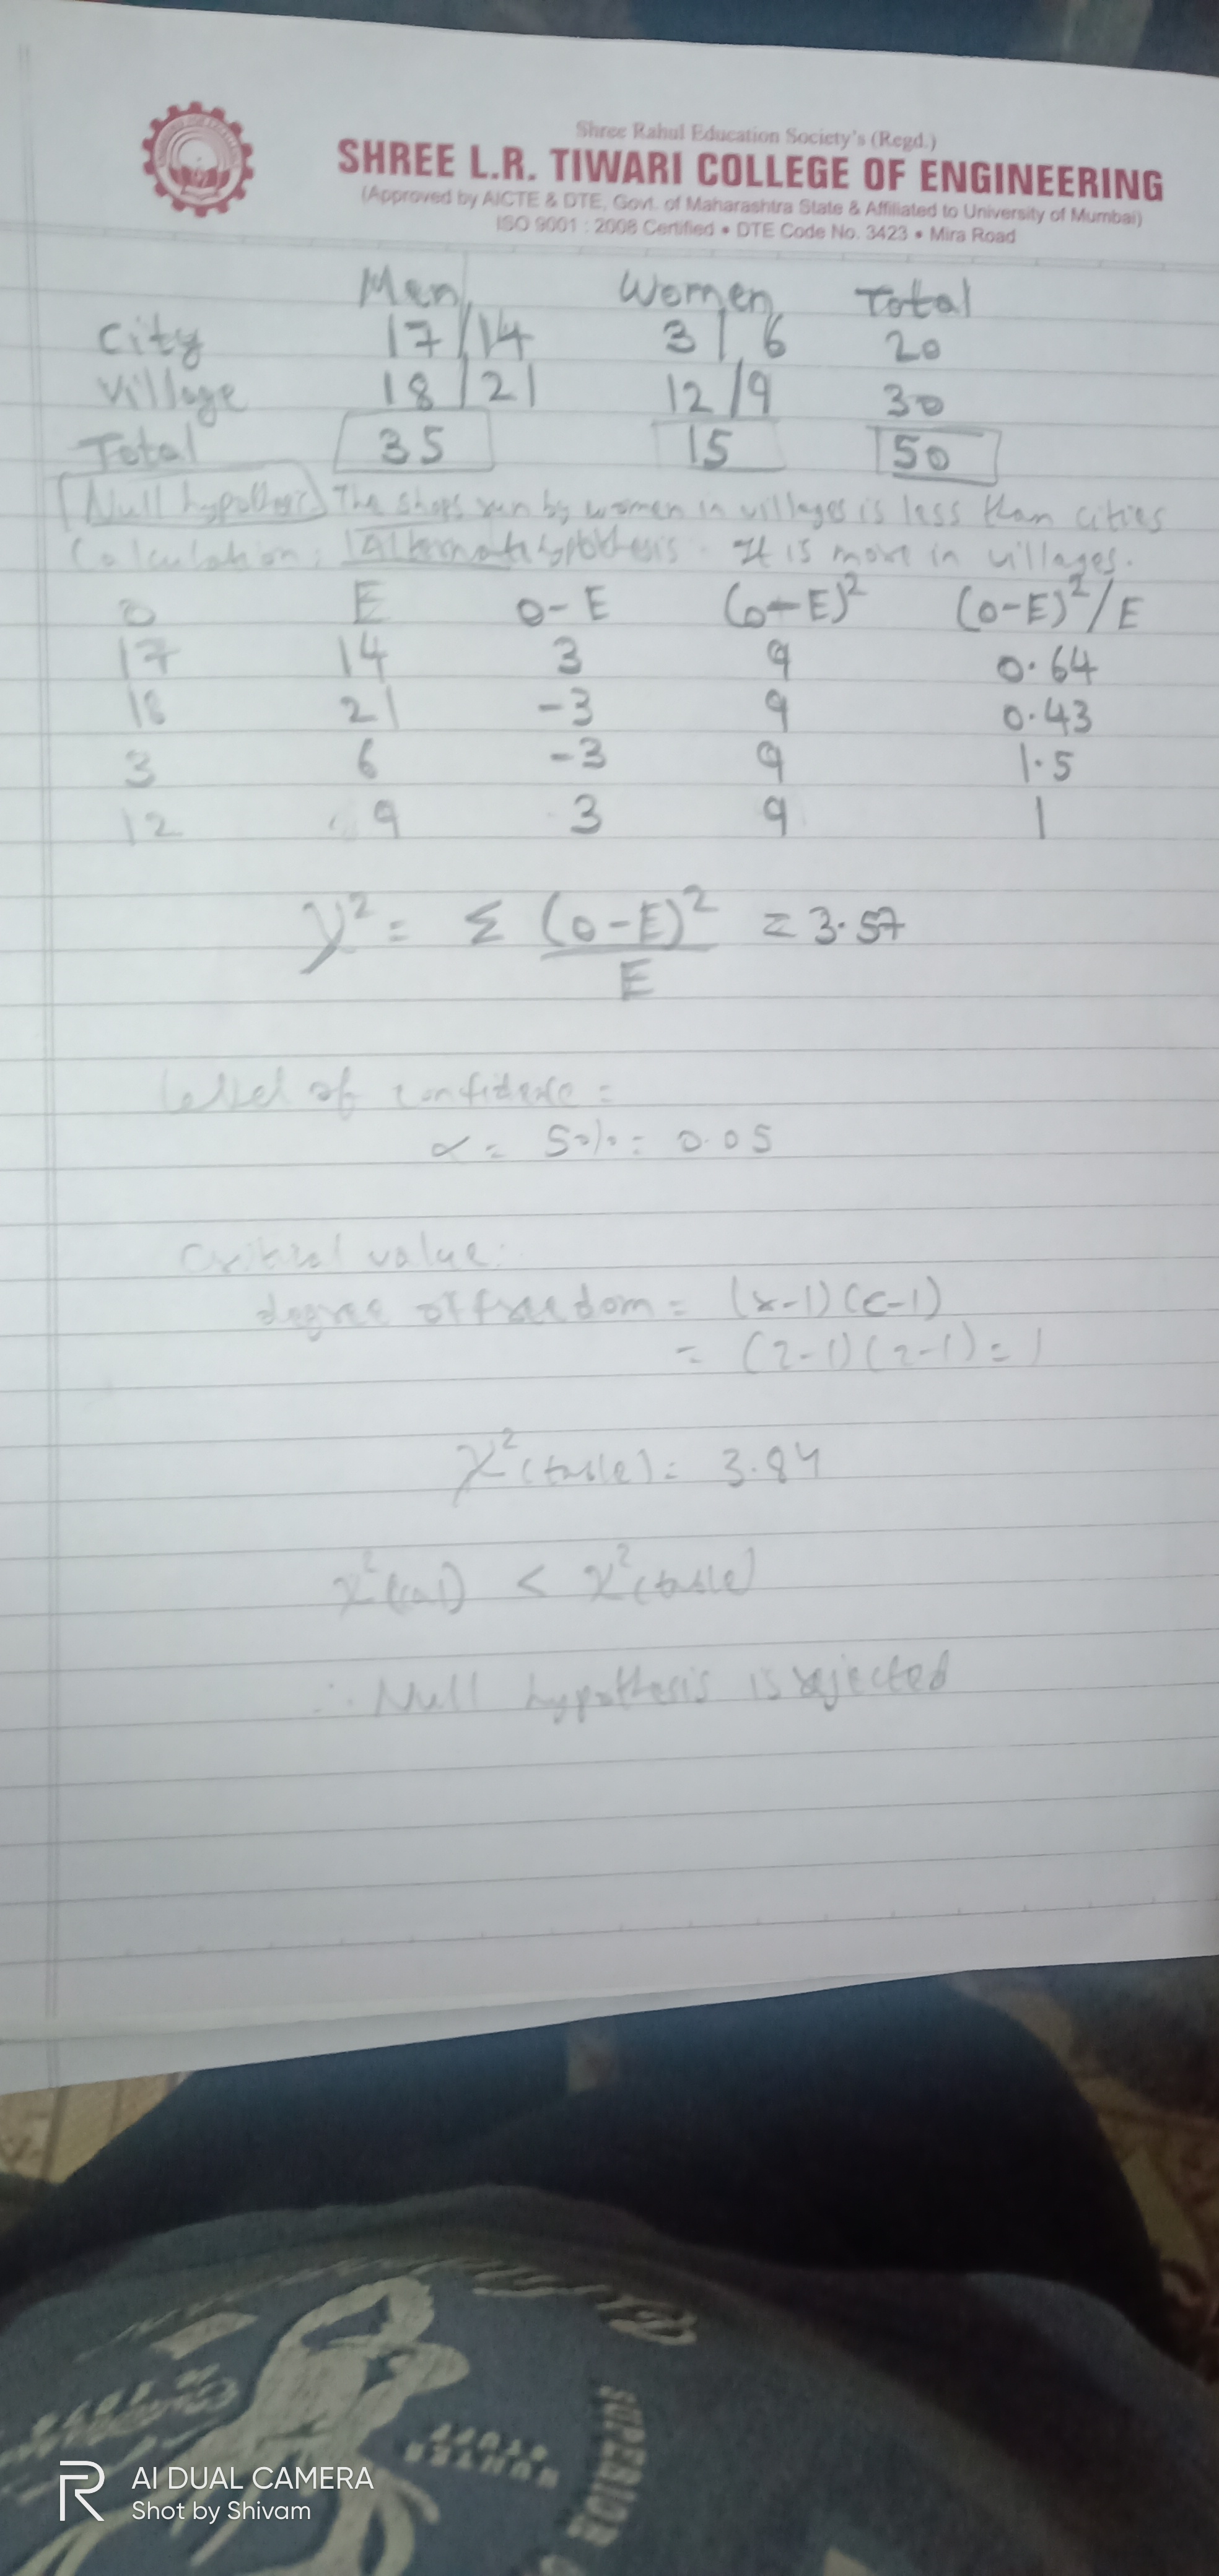 Shree Rahul Education Society's (Regd.)
SHREE L.R. TIWARI COLLEGE OF ENGINEERING
(Approved by AICTE & DTE, Govt. of Maharashtra State & Affiliated to University of Mumbai)
ISO 9001 : 2008 Certified • DTE Code No. 3423 • Mira Road
Men Women Total
City 17/14 3/6 20
Village 18/21 12/9 30
Total 35 15 50
Null hypothesis The shops run by women in villages is less than cities
Calculation: Alternate hypothesis. It is more in villages.
O E O-E (O-E)² (O-E)²/E
17 14 3 9 0.64
18 21 -3 9 0.43
3 6 -3 9 1.5
12 9 3 9 1
χ² = Σ (O-E)²/E = 3.57
level of confidence =
α = 5% = 0.05
Critical value:
degree of freedom = (r-1)(c-1)
= (2-1)(2-1) = 1
χ²(table) = 3.84
χ²(cal) < χ²(table)
∴ Null hypothesis is rejected
SUPERIOR
AI DUAL CAMERA
Shot by Shivam